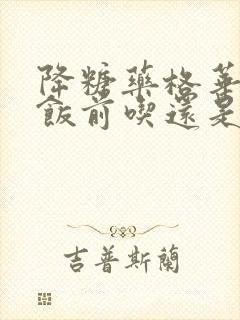 降糖藥格華
飯前喫還是
吉普斯蘭